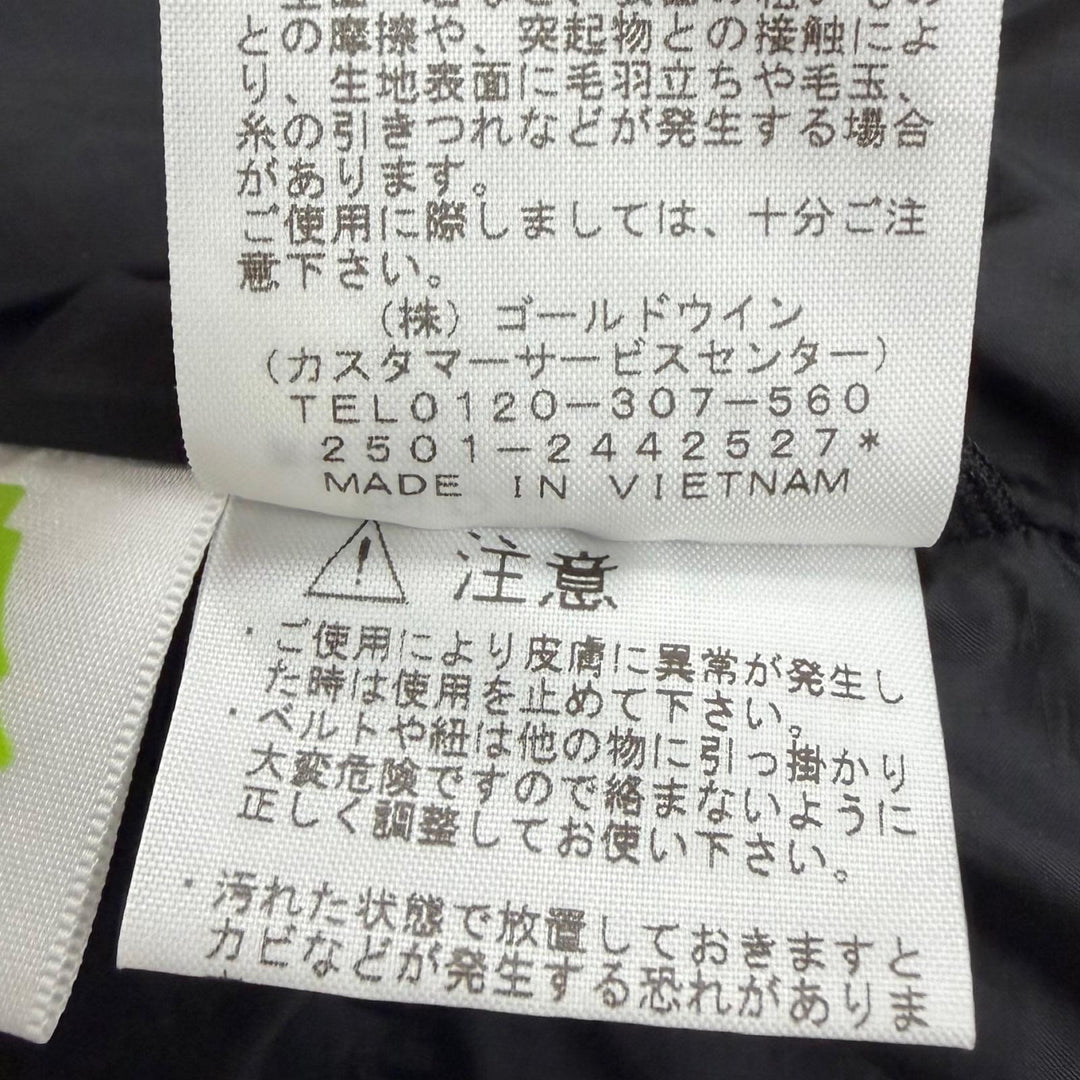 との摩擦や、突起物との接触によ
り、生地表面に毛羽立ちや毛玉、
糸の引きつれなどが発生する場合
があります。
ご使用に際しましては、十分ご注
意下さい。
(株) ゴールドウイン
(カスタマーサービスセンター)
TEL0120-307-560
2501-2442527*
MADE IN VIETNAM
注意
・ご使用により皮膚に異常が発生し
た時は使用を止めて下さい。
・ベルトや紐は他の物に引っ掛かり
大変危険ですので絡まないように
正しく調整してお使い下さい。
・汚れた状態で放置しておきますと
カビなどが発生する恐れがありま